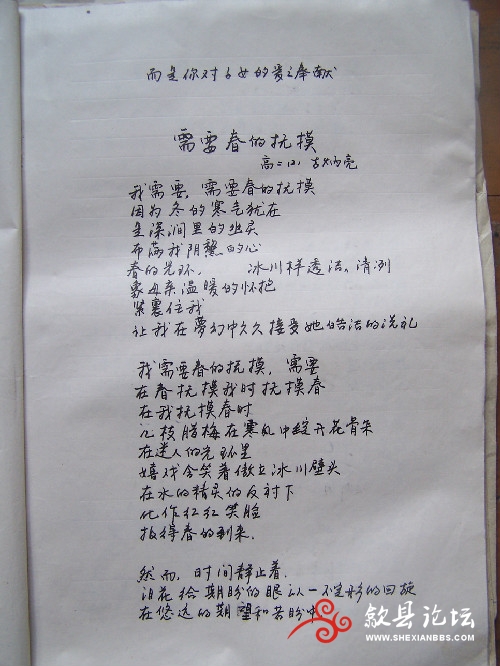 而是你对子女的贵之奉献
需要春的抚摸
高二(2)
我需要,需要春的抚摸
因为冬的寒气犹在
是深涧里的幽灵
布满我阴翳的心
春的光环, 冰川样透洁。清冽
象母亲温暖的怀抱
紧裹住我
让我在梦幻中久久接受她皓洁的洗礼
我需要春的抚摸,需要
在春抚摸我时抚摸春
在我抚摸春时
几枝腊梅在寒风中绽开花骨朵
在迷人的光环里
嬉戏含笑着傲立冰川壁头
在冰的精灵的反衬下
化作红红笑脸
报得春的到来.
然而,时间静止着.
泪花给期盼的眼以一不定形的回旋
在悠远的期望和苦盼中
歙县论坛
WWW.SHEXIANBBS.COM